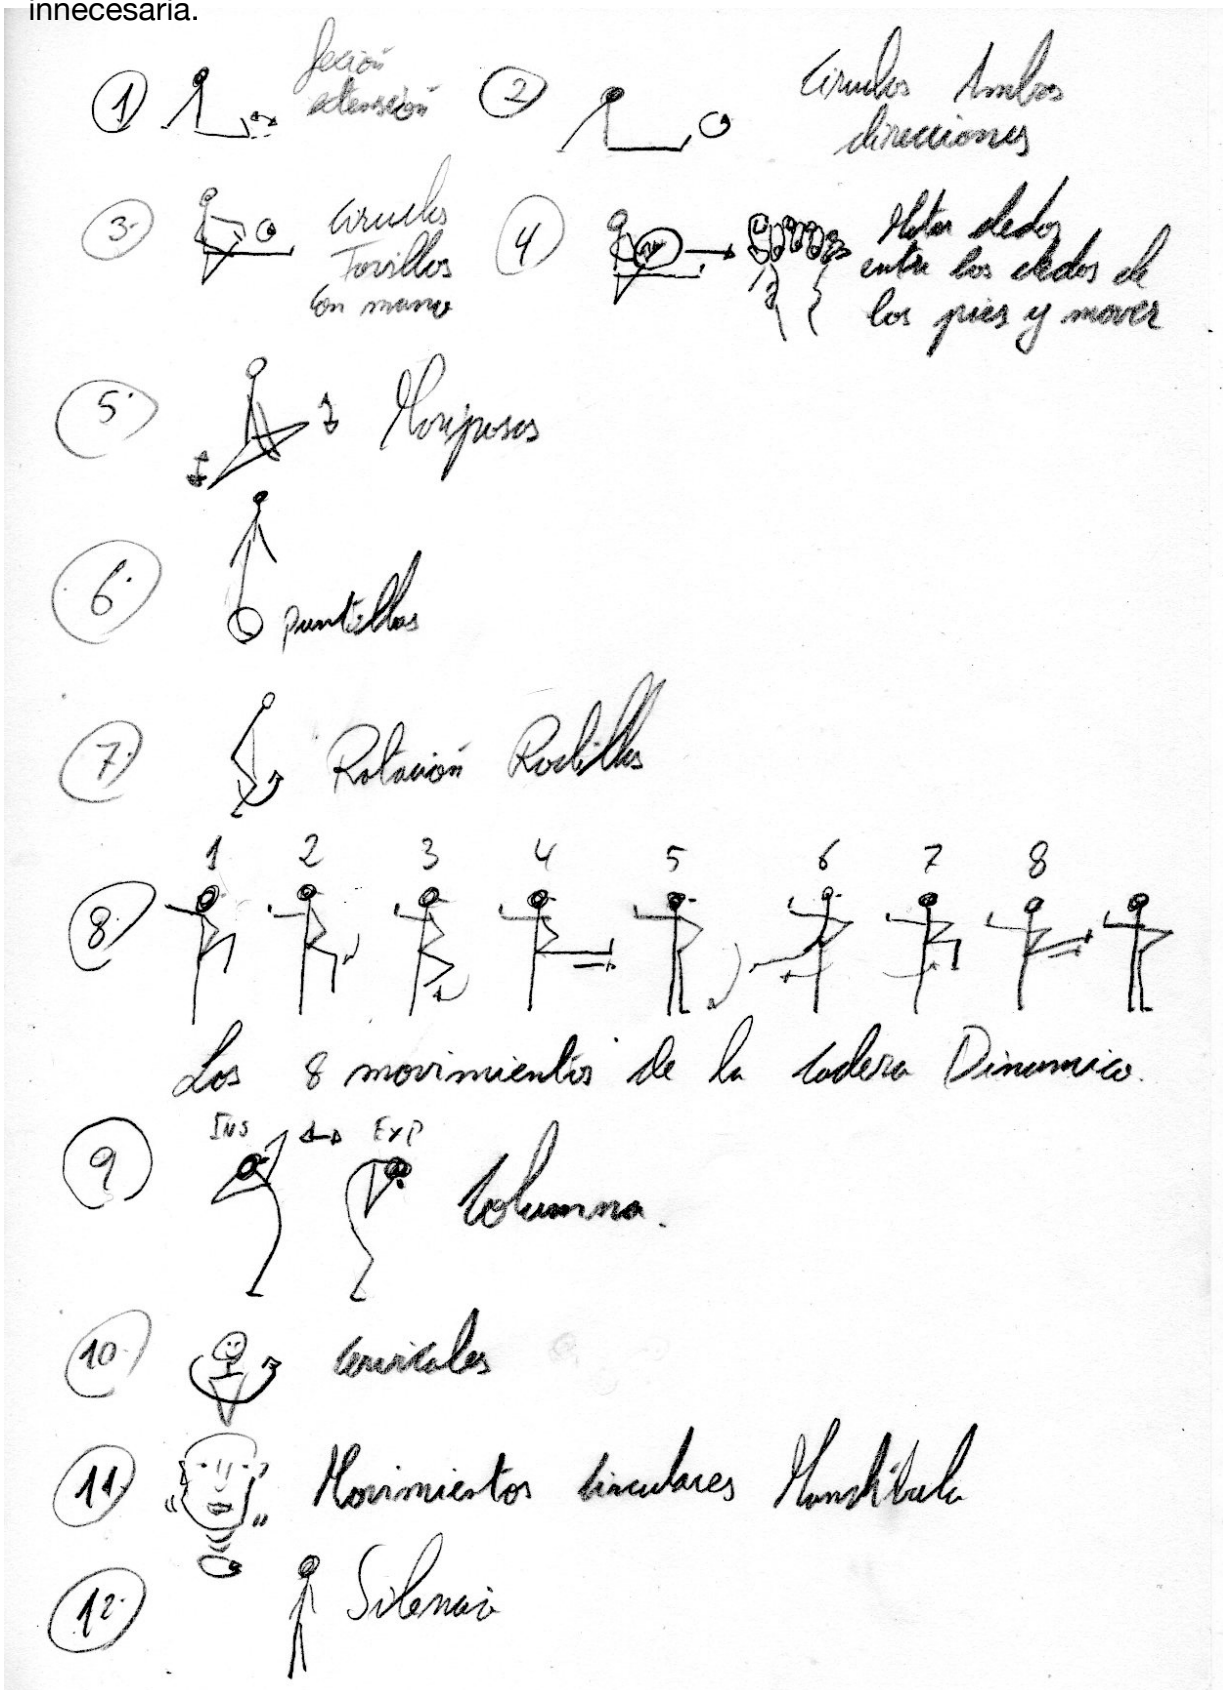 innecesaria.
1 flexión
extensión
2 Círculos Ambas
direcciones
3. círculos
Tovillos
con mano
4 Meter dedos
entre los dedos de
los pies y mover
5. Mariposas
6. puntillas
7. Rotación Rodillas
1 2 3 4 5 6 7 8
8.
Los 8 movimientos de la cadera Dinamico.
9 INS EXP Columna.
10. cervicales
11 Movimientos circulares Mandíbula
12. Silencio